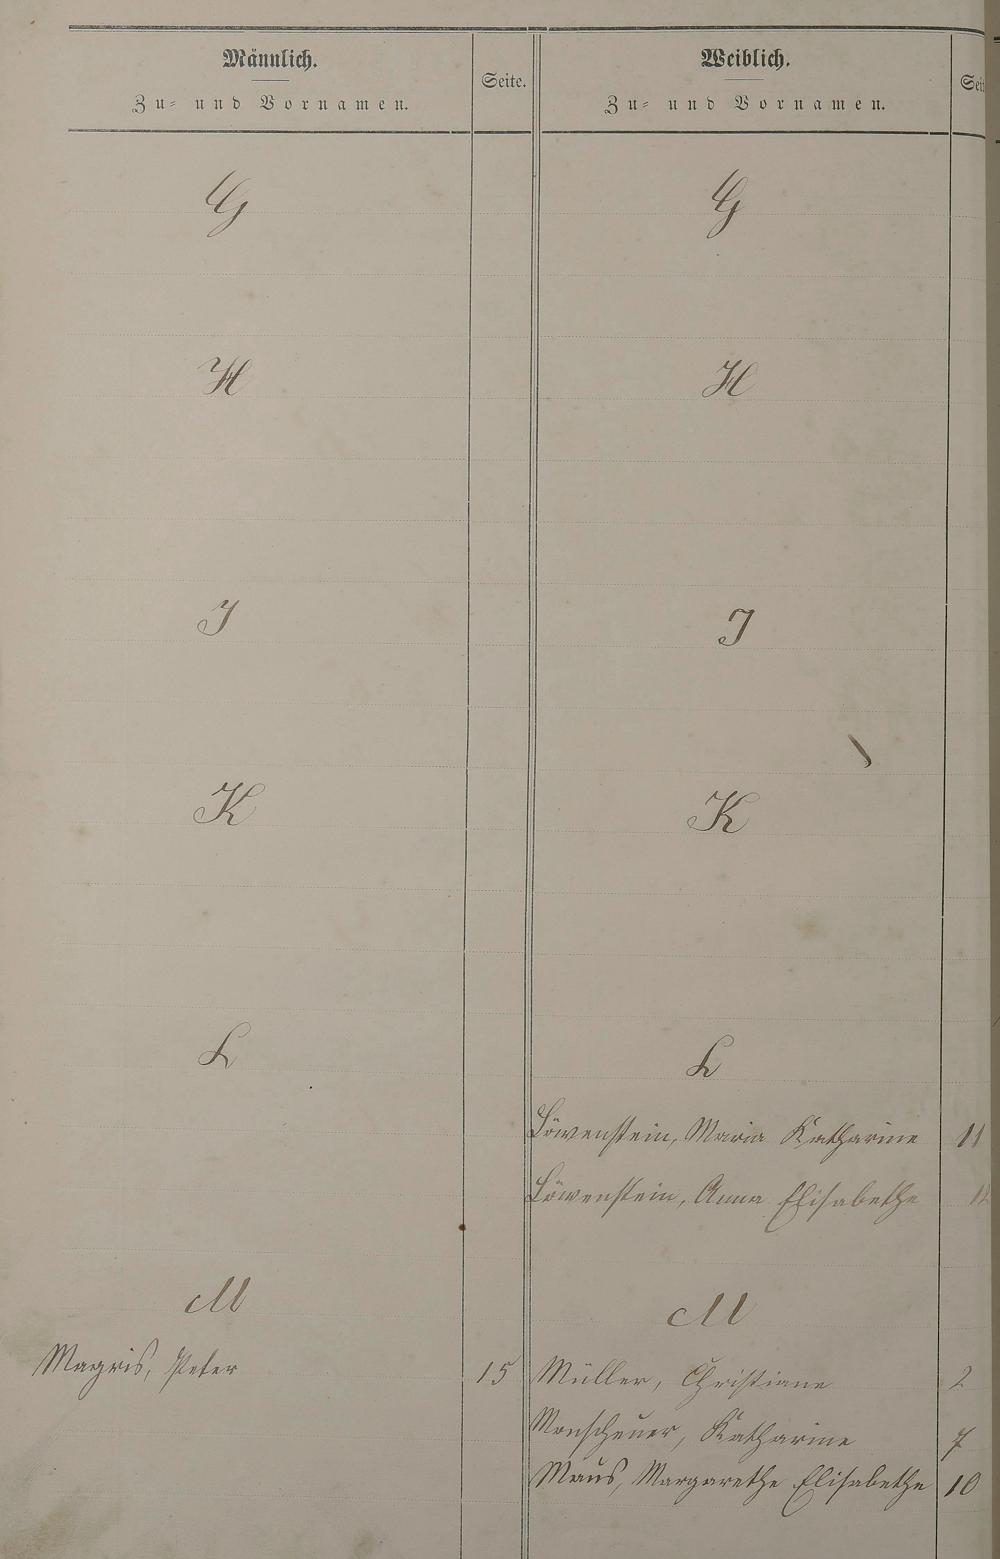 Männlich.
Zu- und Vornamen.
Seite.
Weiblich.
Zu- und Vornamen.
Seit
G
G
H
H
I
I
K
K
L
L
Löwenstein, Maria Katharine 11
Löwenstein, Anna Elisabethe
M
M
Magris, Peter 15
Müller, Christiane 2
Monscheuer, Katharine 7
Maus, Margarethe Elisabethe 10